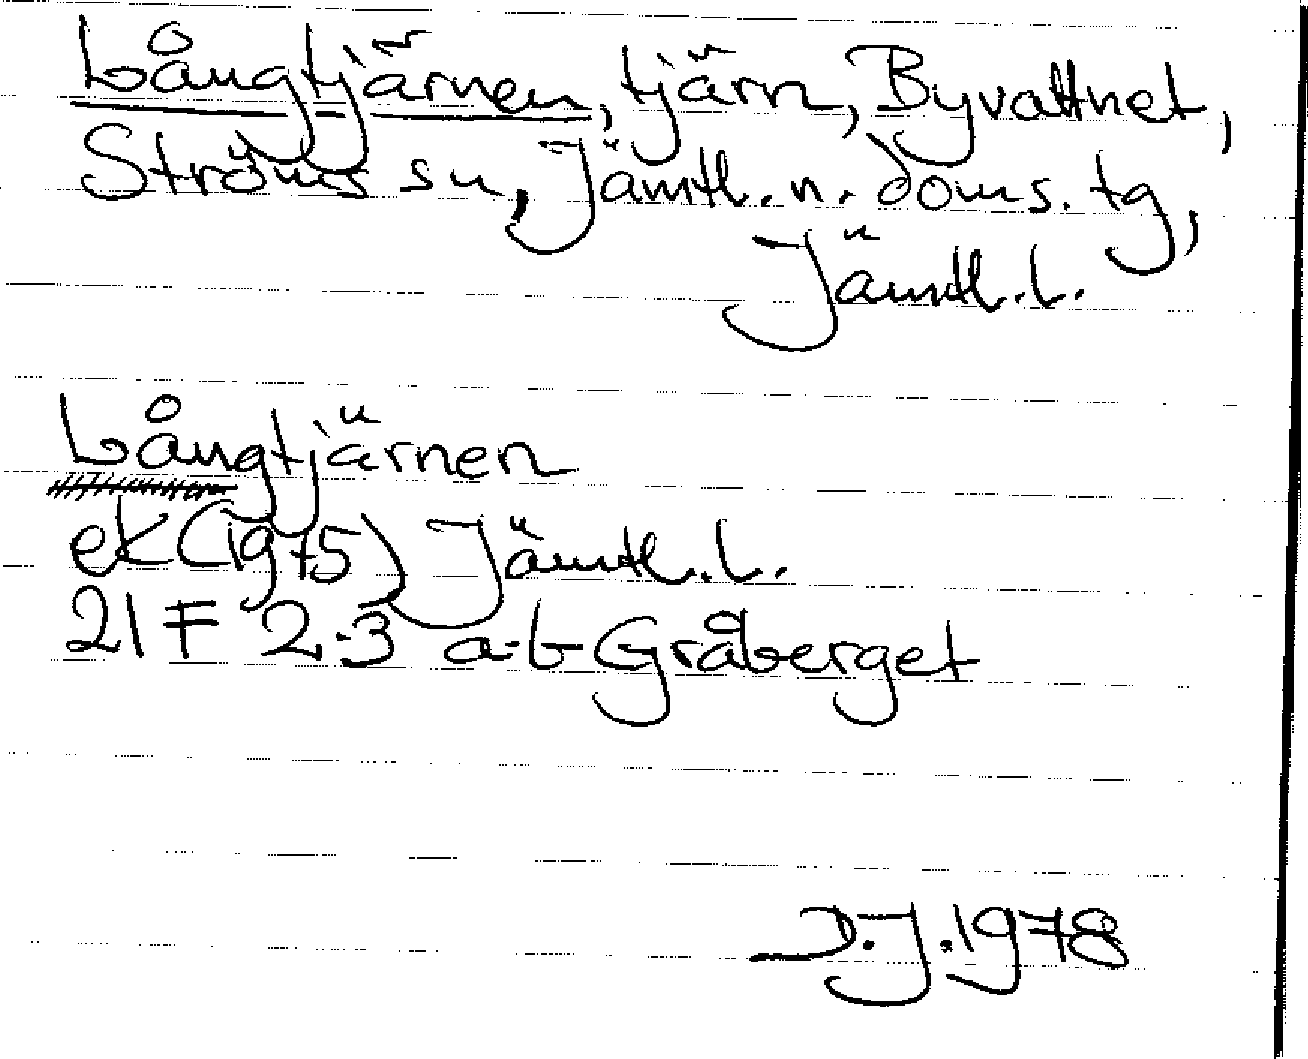 Långtjärnen, tjärn, Byvattnet,
Ströms sn, Jämtl. n. doms. tg,
Jämtl. l.
Långtjärnen
ek (1975) Jämtl. l.
21 F 2-3 a-b Gråberget
D. J. 1978